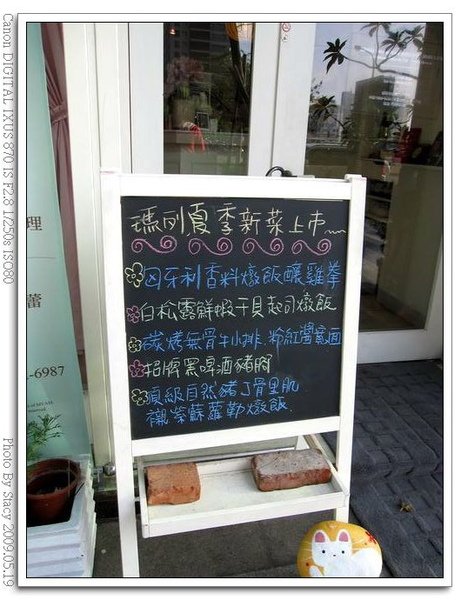 Canon DIGITAL IXUS 870 IS F2.8 1/250s ISO80
瑪列夏季新菜上市
匈牙利香料燉飯釀雞拳
白松露鮮蝦干貝起司燉飯
碳烤無骨牛小排.粉紅醬氣泡
招牌黑啤酒豬腳
頂級自然豬丁骨里肌
襯紫蘇蘿勒燉飯.
理
蕾
-6987
Photo By Stacy 2009.05.19